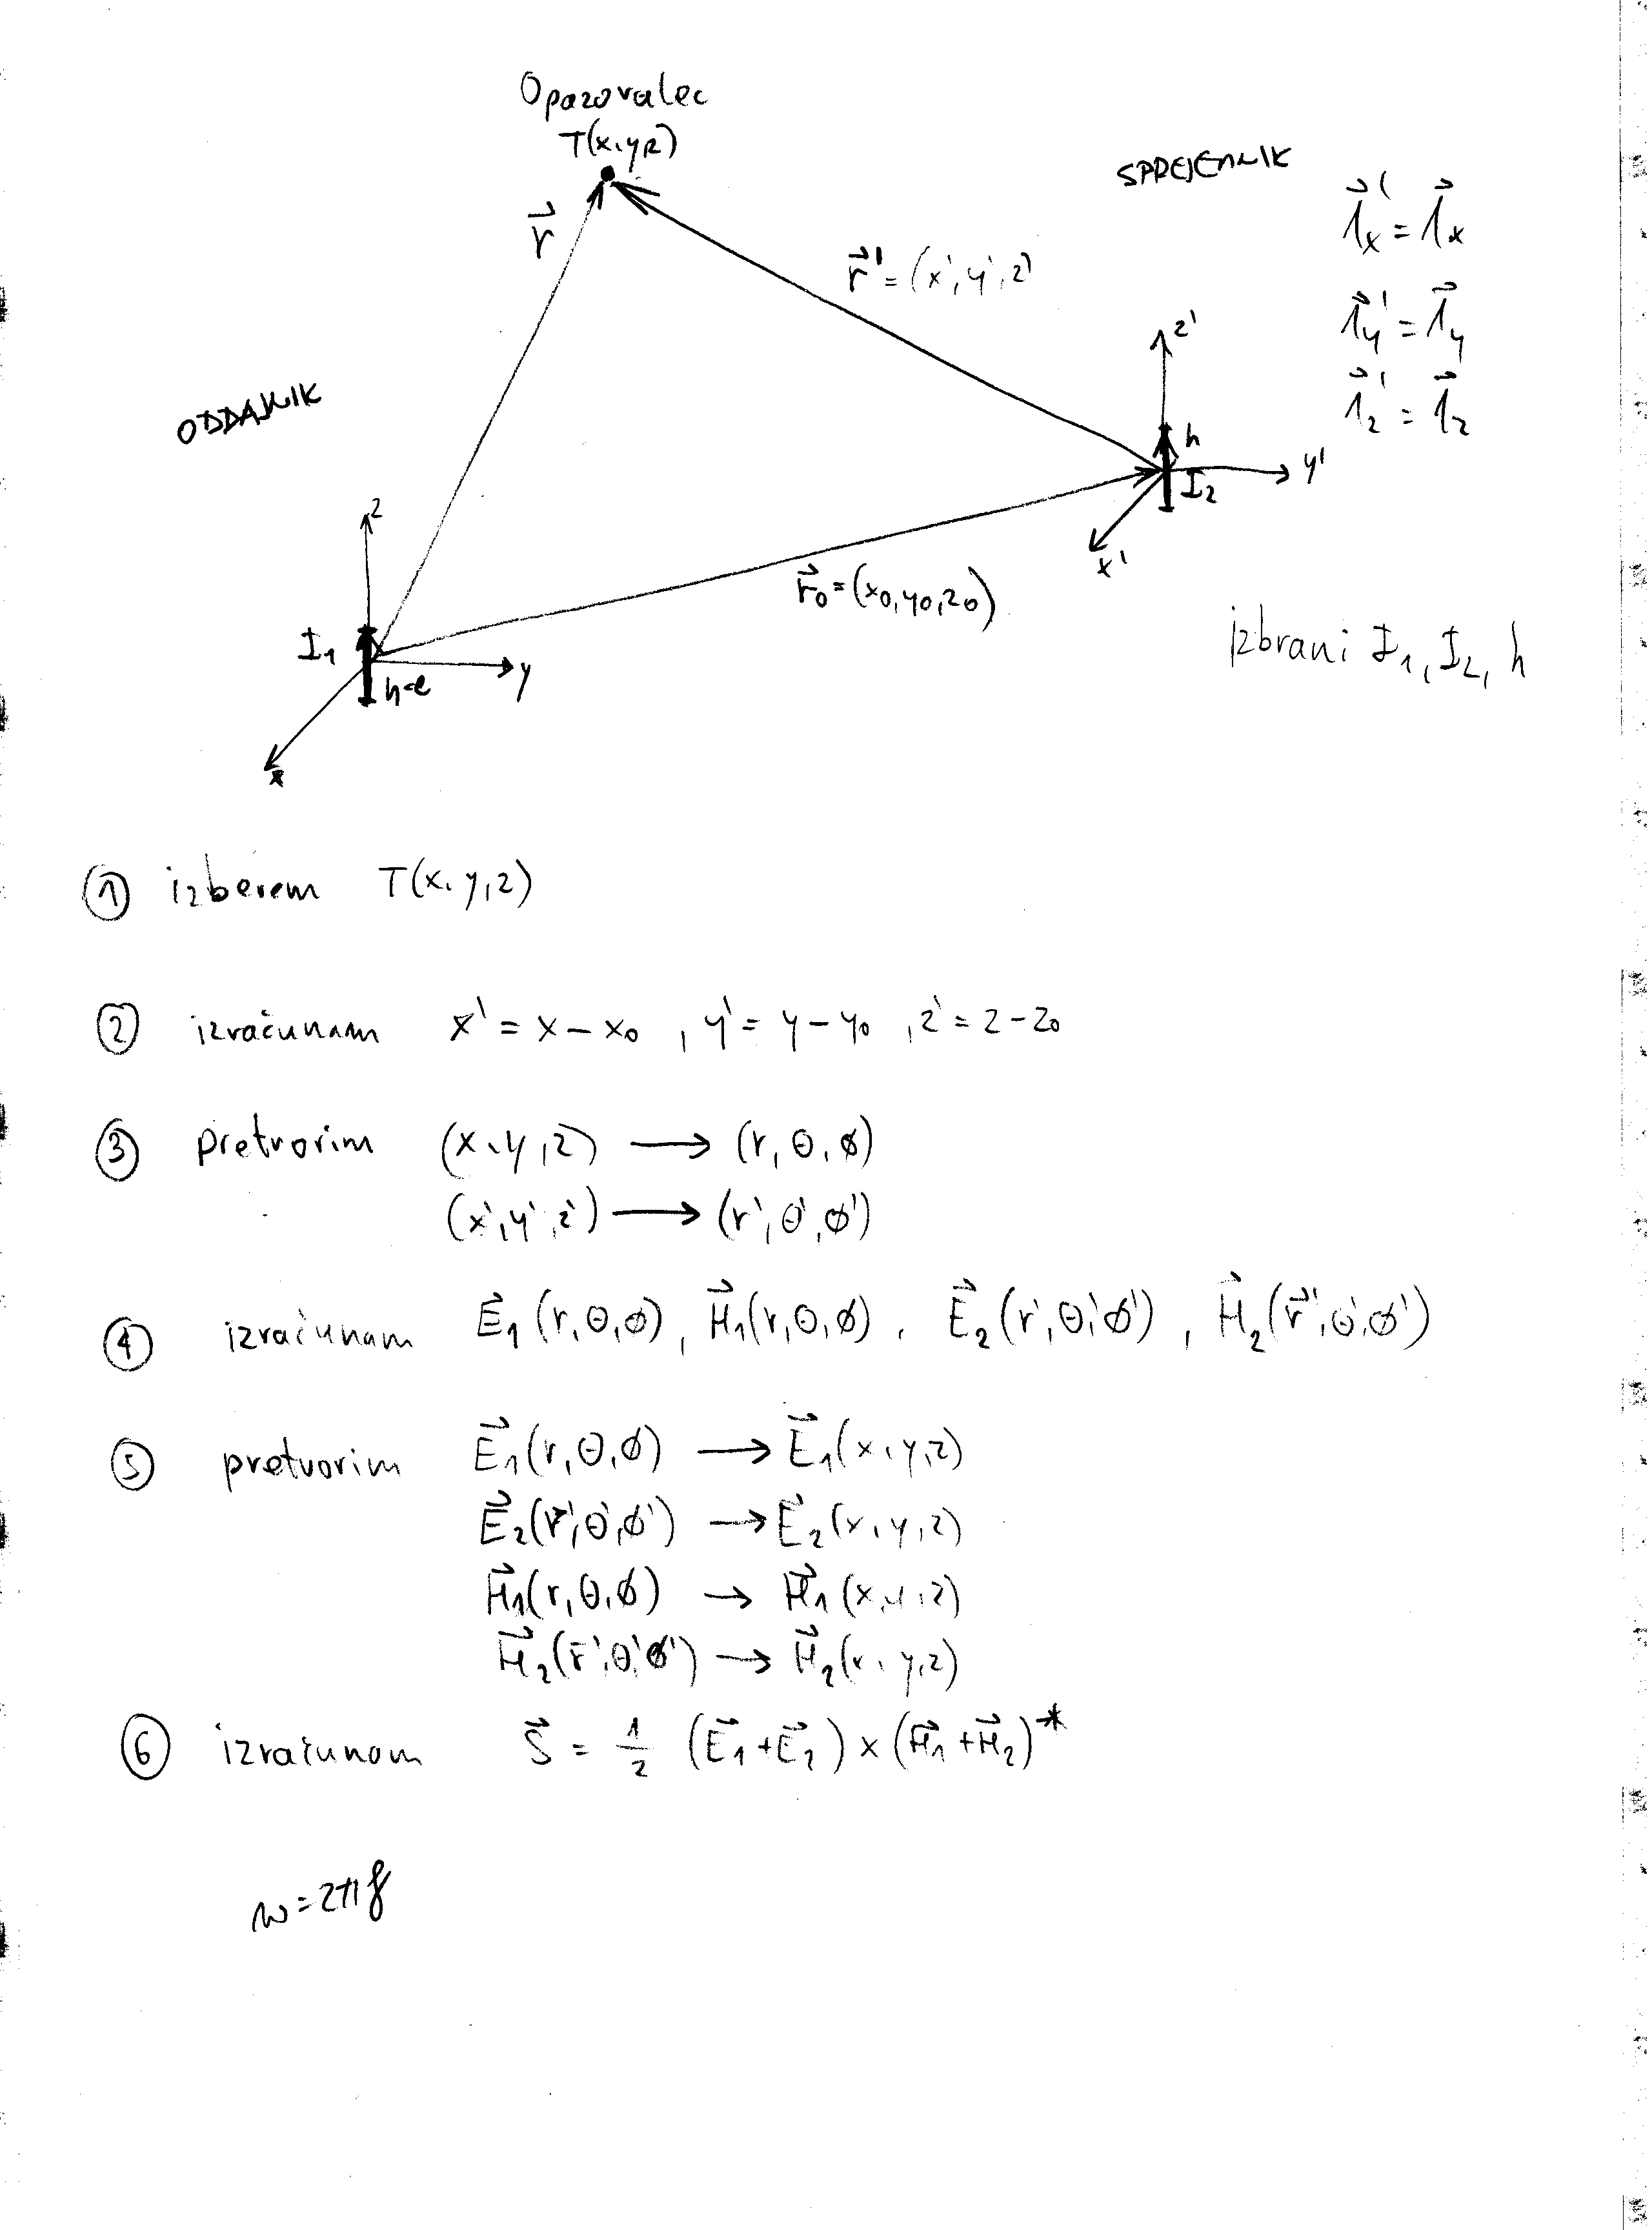 Opazovalec
T(x,y,z)
SPREJEMNIK
r⃗
r⃗' = (x', y', z')
1⃗x' = 1⃗x
1⃗y' = 1⃗y
1⃗z' = 1⃗z
ODDAJNIK
z'
h
y'
I2
x'
z
r⃗0 = (x0, y0, z0)
I1
y
x
izbrani I1, I2, h
① izberem T(x, y, z)
② izračunam x' = x - x0 , y' = y - y0 , z' = z - z0
③ pretvorim (x, y, z) → (r, θ, ϕ)
(x', y', z') → (r', θ', ϕ')
④ izračunam E⃗1 (r, θ, ϕ), H⃗1(r, θ, ϕ), E⃗2 (r', θ', ϕ'), H⃗2(r⃗', θ', ϕ')
⑤ pretvorim E⃗1(r, θ, ϕ) → E⃗1(x, y, z)
E⃗2(r', θ', ϕ') → E⃗2(x, y, z)
H⃗1(r, θ, ϕ) → H⃗1(x, y, z)
H⃗2(r', θ', ϕ') → H⃗2(x, y, z)
⑥ izračunam S⃗ = 1/2 (E⃗1 + E⃗2) × (H⃗1 + H⃗2)*
ω = 2πf